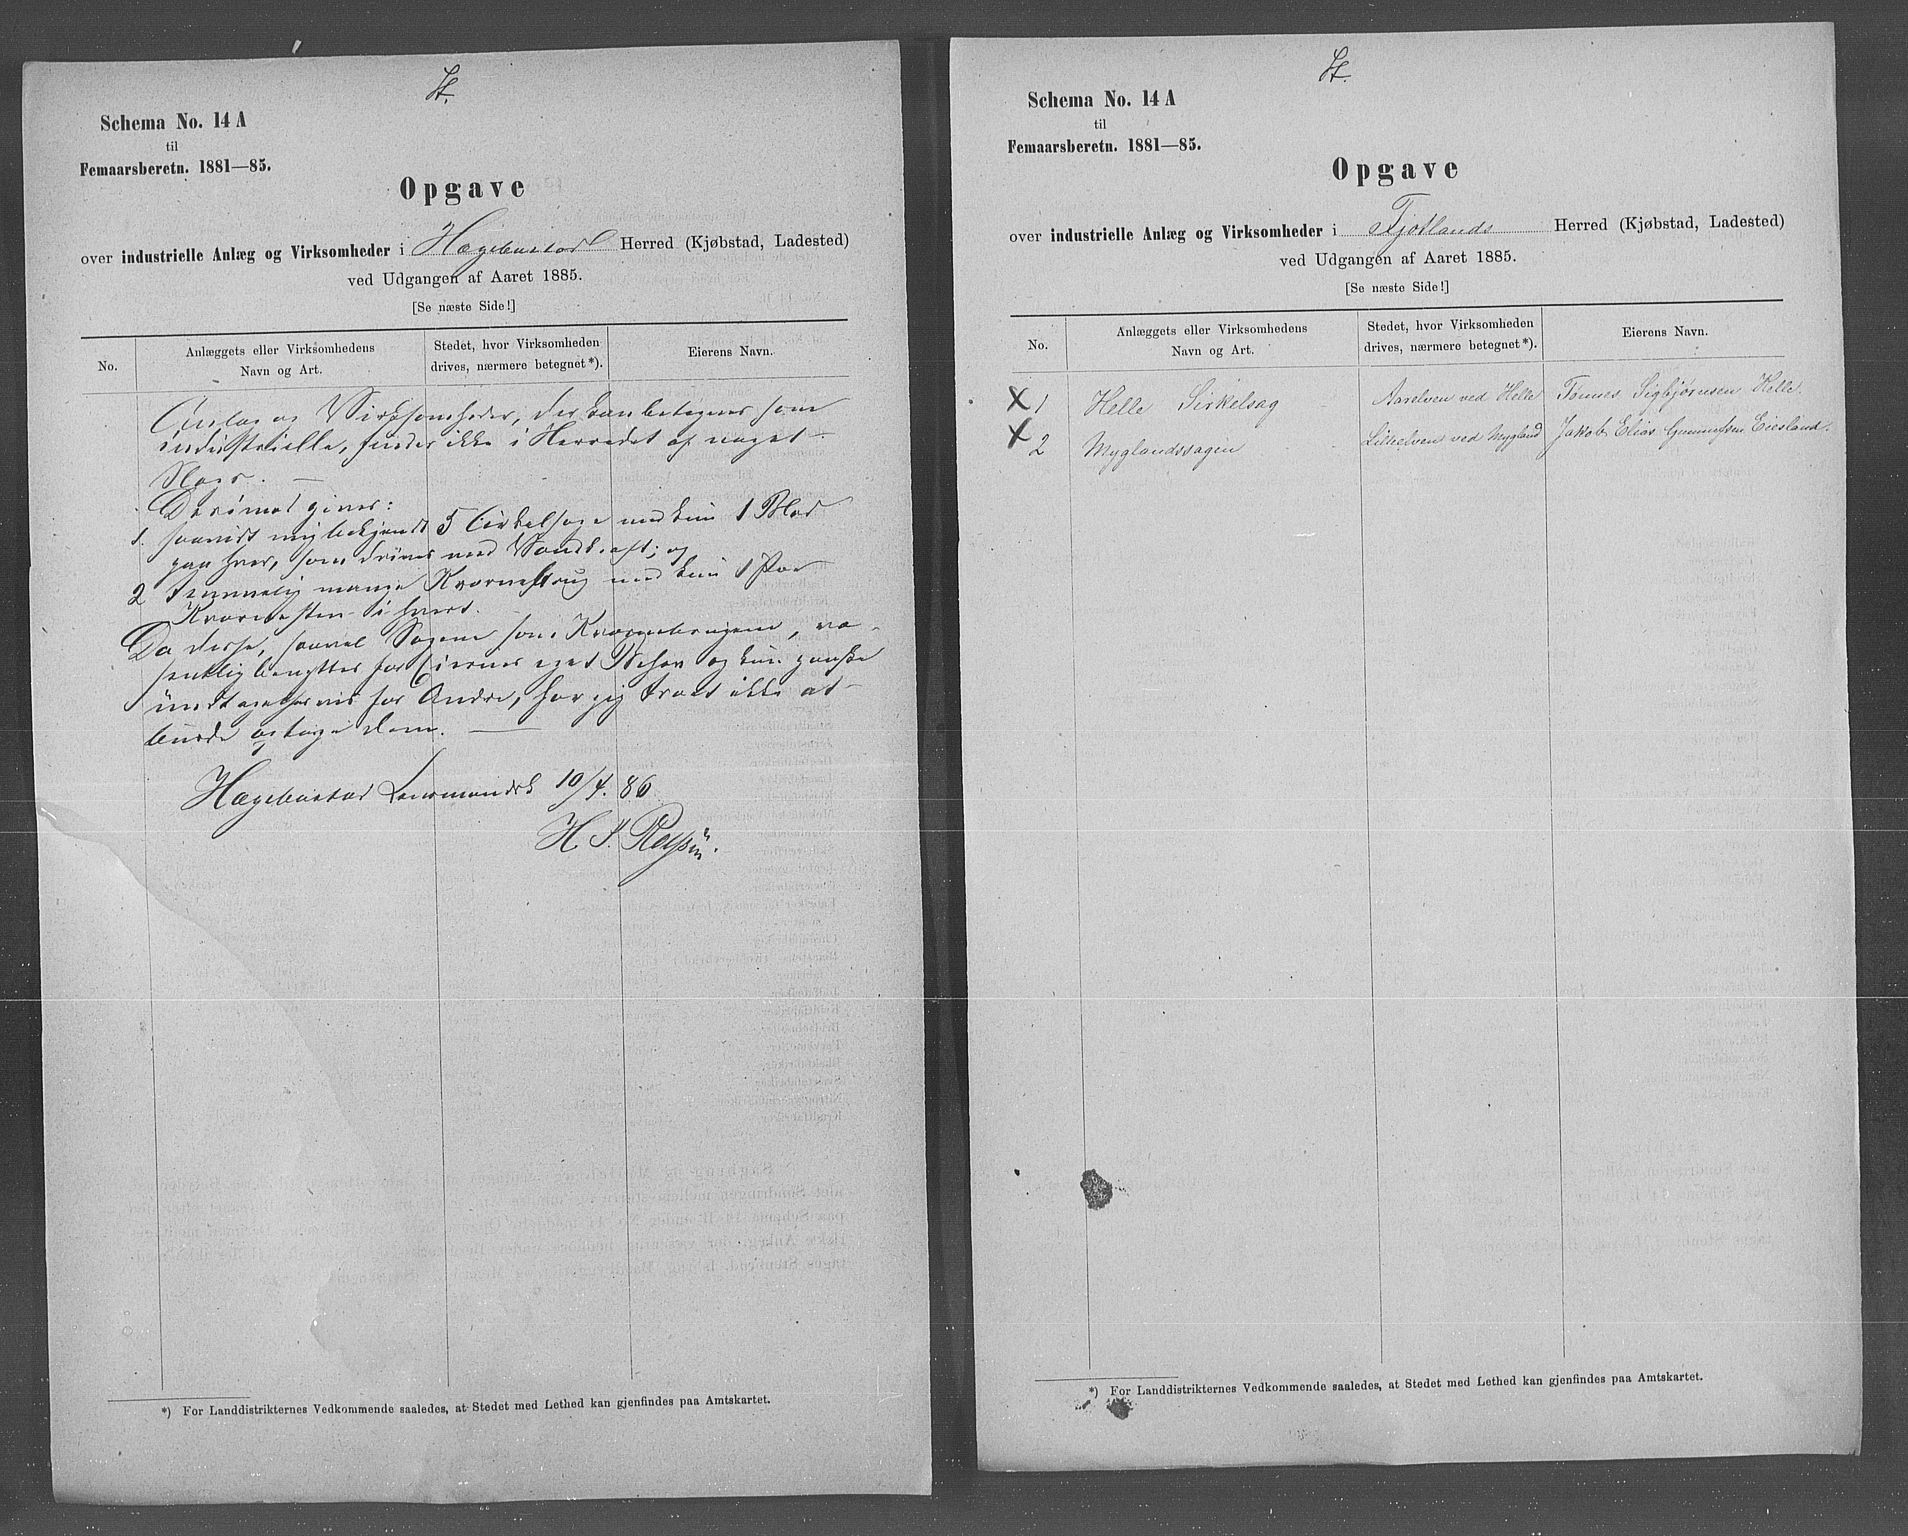 St.
Schema No. 14 A
til
Femaarsberetn. 1881—85.
Opgave
over industrielle Anlæg og Virksomheder i Hægebostad Herred (Kjøbstad, Ladested)
ved Udgangen af Aaret 1885.
[Se næste Side!]
No.
Anlæggets eller Virksomhedens
Navn og Art.
Stedet, hvor Virksomheden
drives, nærmere betegnet*).
Eierens Navn.
Anlæg og Virksomheder, der kan betegnes som
industrielle, findes ikke i Herredet af noget
Slags. —
Derimod gives:
1. saavidt mig bekjendt 5 Cirkelsage med kun 1 Blad
paa hver, som drives med Vandkraft; og
2 temmelig mange Kværnebrug med kun 1 Par
Kværnesten i hvert.
Da disse, saavel Sagene som Kværnebrugene, væ-
sentlig benyttes for Eiernes eget Behov og kun ganske
undtagelsesvis for Andre, har jeg troet ikke at
burde optage dem. —
Hægebostad Lensmandsk 10/4. 86
H. S.
*) For Landdistrikternes Vedkommende saaledes, at Stedet med Lethed kan gjenfindes paa Amtskartet.
St.
Schema No. 14 A
til
Femaarsberetn. 1881—85.
Opgave
over industrielle Anlæg og Virksomheder i Fjotlands Herred (Kjøbstad, Ladested)
ved Udgangen af Aaret 1885.
[Se næste Side!]
No.
Anlæggets eller Virksomhedens
Navn og Art.
Stedet, hvor Virksomheden
drives, nærmere betegnet*).
Eierens Navn.
X 1 Helle Sirkelsag Aaelven ved Helle Tønnes Sigbjørnsen Helle.
X 2 Myglandssagen Litleelven ved Mygland Jakob Elias Gunnufsen Eiesland.
*) For Landdistrikternes Vedkommende saaledes, at Stedet med Lethed kan gjenfindes paa Amtskartet.